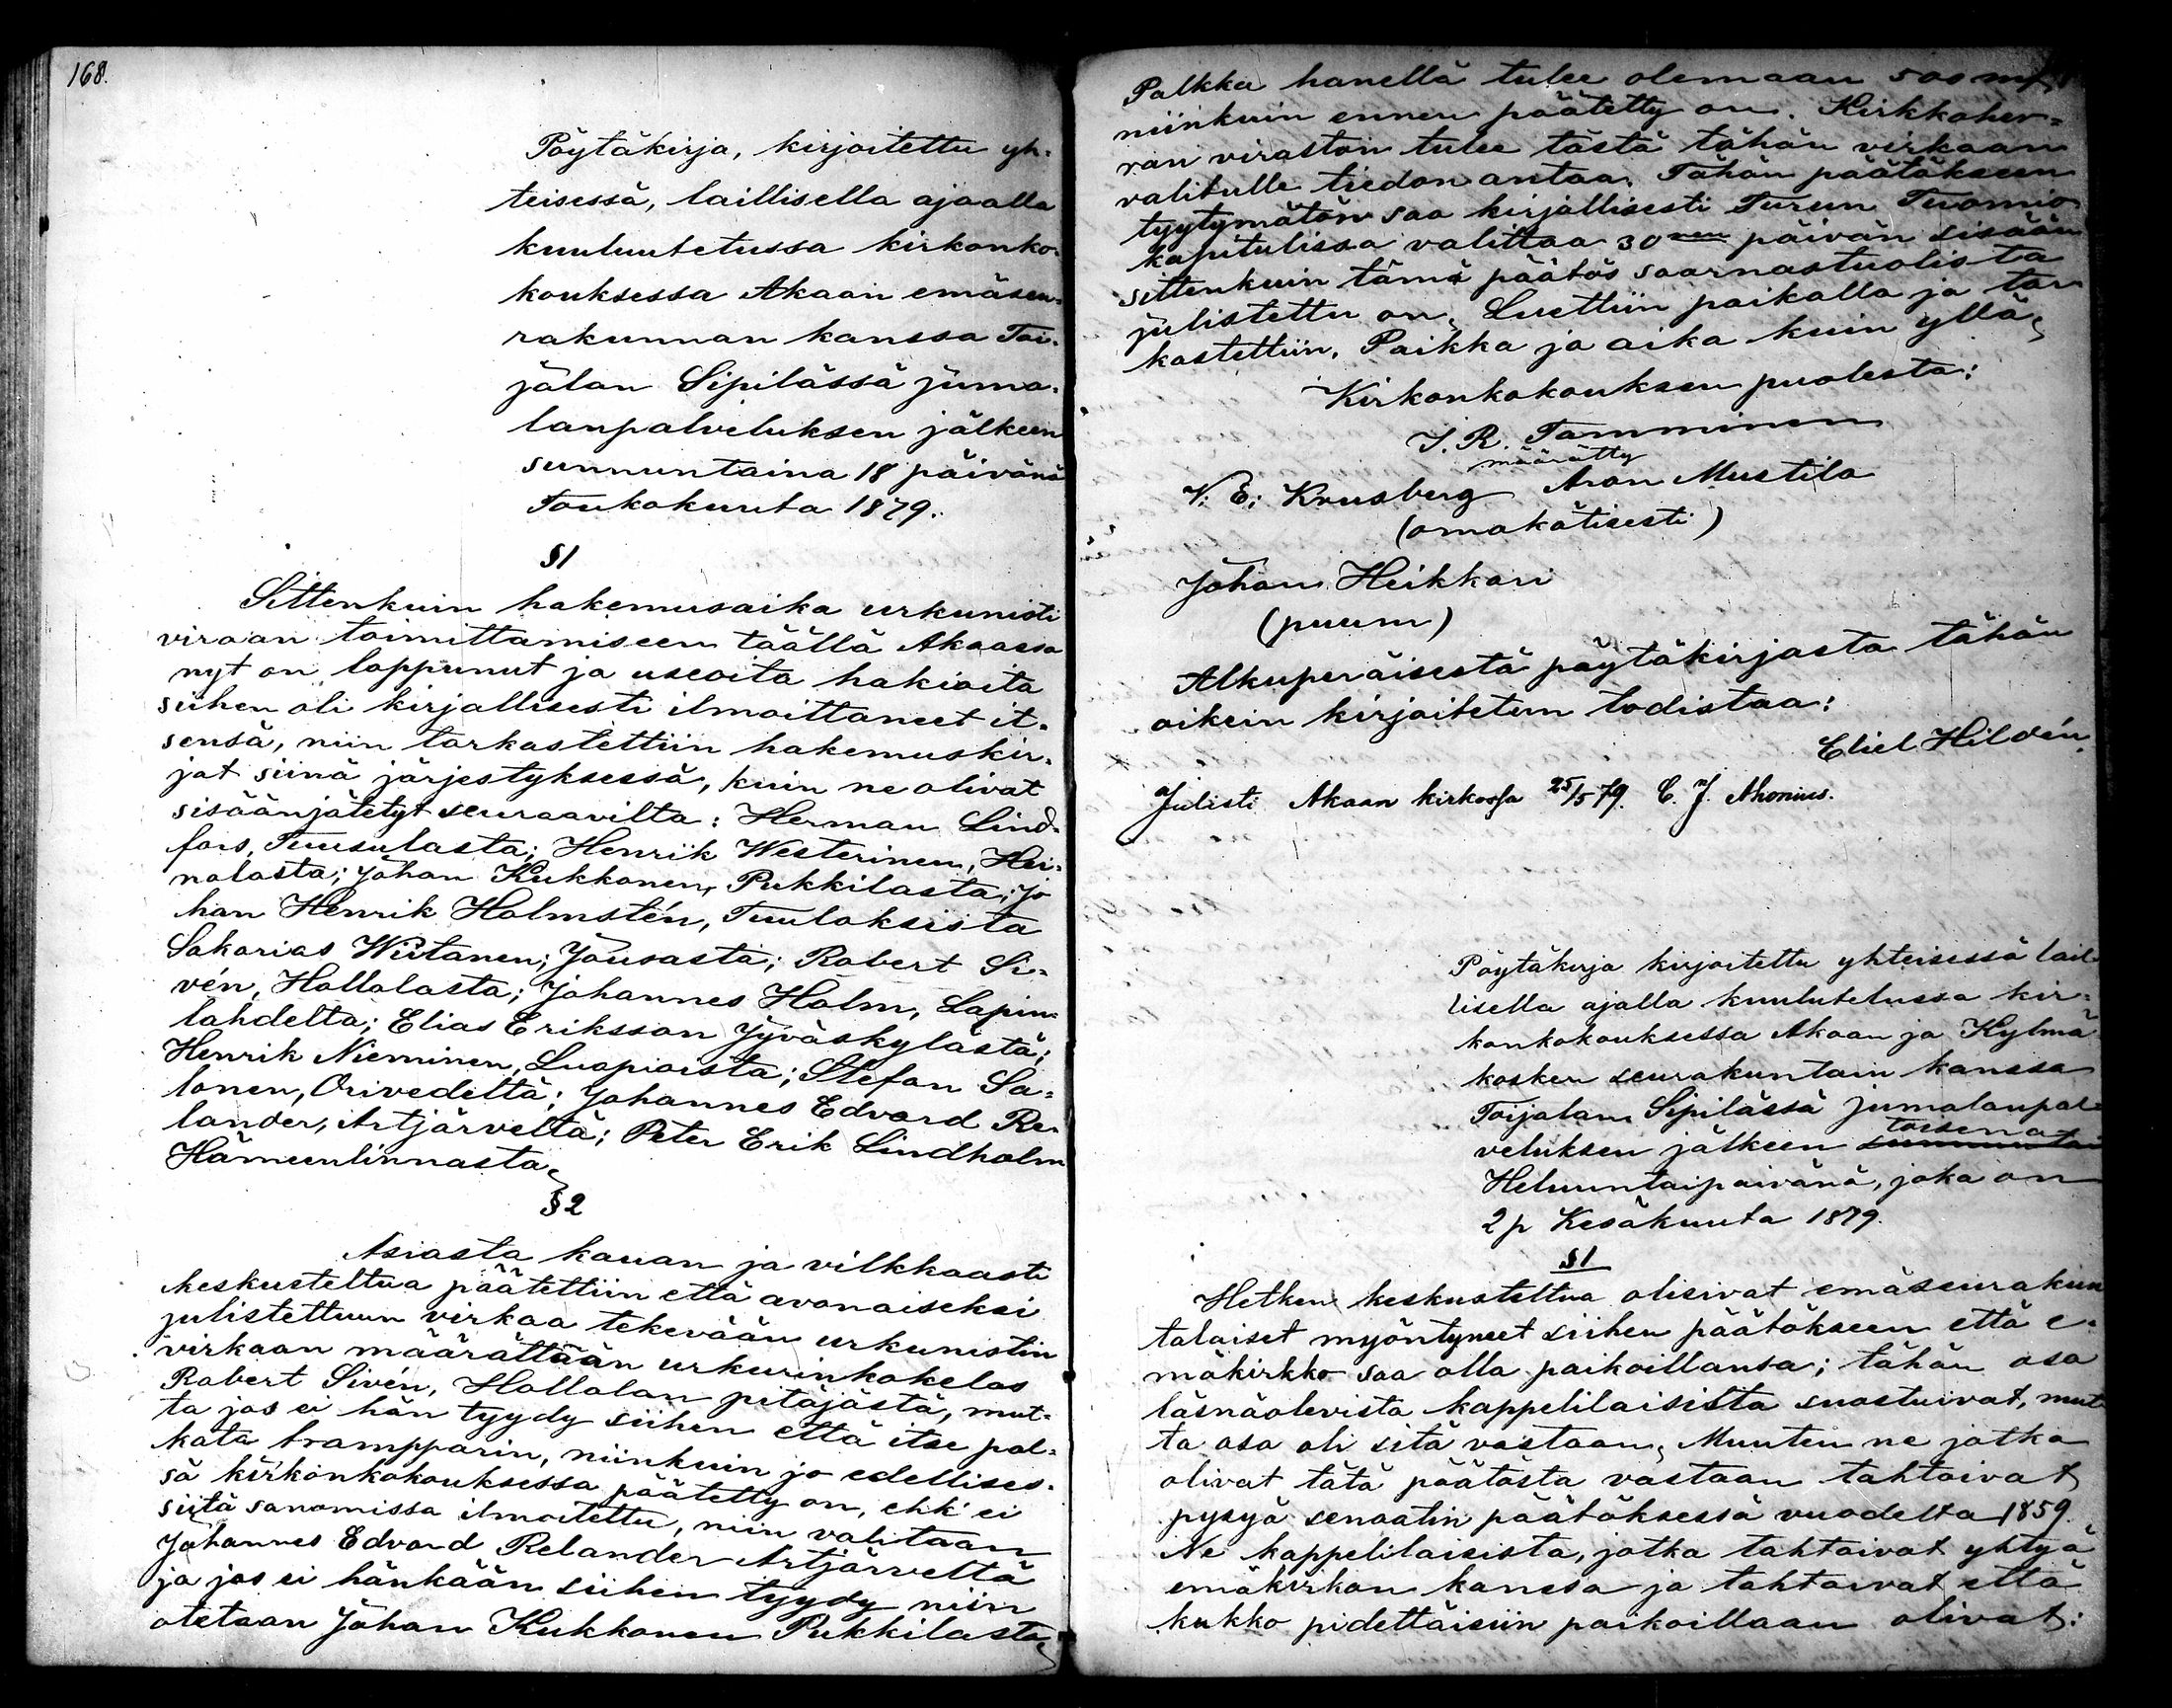 168.
Pöytäkirja, kirjoitettu yh-
teisessä, laillisella ajaalla
kuuluutetussa kirkonko-
kouksessa Akaan emäseu-
rakunnan kanssa Toi-
jalan Sipilässä juma-
lanpalveluksen jälkeen
sunnuntaina 18 päivänä
Toukokuuta 1879.
§1
Sittenkuin hakemusaika urkunisti
viraan toimittamiseen täällä Akaassa
nyt on loppunut ja useoita hakioita
siihen oli kirjallisesti ilmoittaneet it-
sensä, niin tarkastettiin hakemuskir-
jat siinä järjestyksessä, kuin ne olivat
sisäänjätetyt seuraavilta: Herman Lind-
fors, Tuusulasta; Henrik Westerinen, Hei-
nolasta; Johan Kukkonen, Pukkilasta; Jo
han Henrik Holmstén, Tuuloksista
Sakarias Wiitanen; Jousasta; Robert Si-
vén, Hollolasta; Johannes Holm, Lapin-
lahdelta; Elias Eriksson Jyväskylästä;
Henrik Nieminen, Luopioista; Stefan Sa-
lonen, Orivedeltä; Johannes Edvard Re-
lander, Artjärveltä; Peter Erik Lindholm
Hämeenlinnasta,
§2
Asiasta kauan ja vilkkaasti
keskusteltua päätettiin että avonaiseksi
julistettuun virkaa tekevään urkunistin
virkaan määrättään urkurinkokelas
Robert Sivén, Hollolan pitäjästä, mut-
ta jos ei hän tyydy siihen että itse pal-
kata trampparin, niinkuin jo edellises-
sä kirkonkokouksessa päätetty on, ehk' ei
siitä sanomissa ilmoitettu, niin valitaan
Johannes Edvard Relander Artjärveltä
ja jos ei hänkään siihen tyydy niin
otetaan Johan Kukkonen Pukkilasta,
Palkka hanellä tulee olemaan 500 mk,
niinkuin ennen päätetty on. Kirkkoher-
ran viraston tulee tästä tähän virkaan
valitulle tiedon antaa. Tähän päätökseen
tyytymätön saa kirjallisesti Turun Tuomio
kapitulissa valittaa 30nen päivän sisään
sittenkuin tämä päätös saarnastuolista
julistettu on, Luettiin paikalla ja tar
kastettiin. Paikka ja aika kuin yllä,
Kirkonkokouksen puolesta:
J. R. Tamminen
määrätty
V: E: Krusberg Aron Mustila
(omakätisesti)
Johan Heikkari
(puum)
Alkuperäisestä pöytäkirjasta tähän
oikein kirjoitetun todistaa:
Eliel Hildén.
Julisti Akaan kirkossa 25/5 79. C. J. Ahonius.
Pöytäkirja kirjoitettu yhteisessä lail-
lisella ajalla kuulutetussa kir-
konkokouksessa Akaan ja Kylmä
kosken seurakuntain kanssa
Toijalan Sipilässä Jumalanpal-
toisena
veluksen jälkeen sunnuntai
Heluuntaipäivänä, joka on
2 p Kesäkuuta 1879.
§1
Hetken keskusteltua olisivat emäseurakun
talaiset myöntyneet siihen päätökseen että e-
mäkirkko saa olla paikoillansa; tähän osa
läsnäolevista kappelilaisista suostuivat, mut
ta osa oli sitä vastaan, Muuten ne jotka
olivat tätä päätöstä vastaan tahtoivat
pysyä senaatin päätöksessä vuodelta 1859.
Ne kappelilaisista, jotka tahtoivat yhtyä
emäkirkon kanssa ja tahtoivat että
kirkko pidettäisiin paikoillaan olivat: